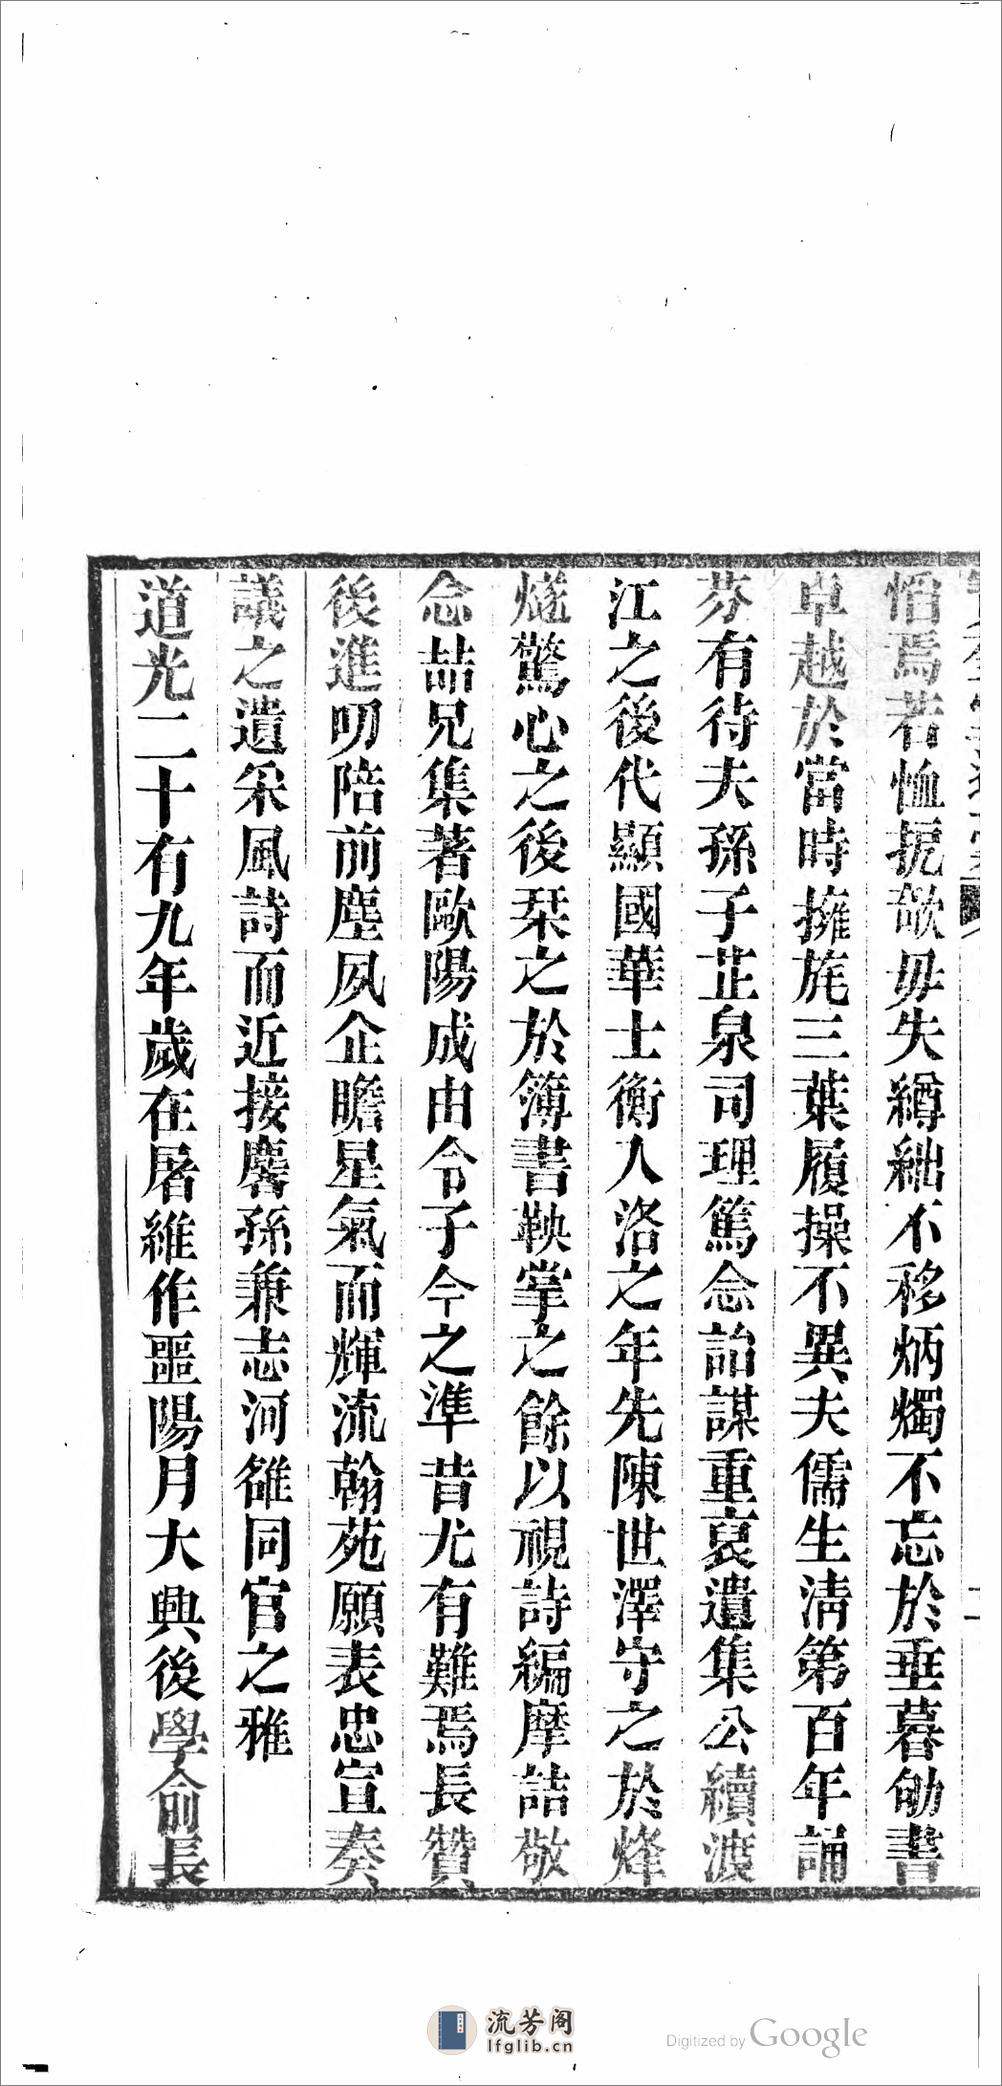 惂焉若恤扼欿毋失縛絀不移炳燭不忘於垂暮劬書
卓越於當時擁旄三葉履操不異夫儒生淸第百年誦
芬有待夫孫子芷泉司理篤念詒謀重裒遺集公續渡
江之後代顯國華士衡入洛之年先陳世澤守之於烽
燧驚心之後栞之於簿書鞅掌之餘以視詩編摩詰敬
念喆兄集著歐陽成由令子今之準昔尤有難焉長贊
後進叨陪前塵夙企瞻星氣而輝流翰苑願表忠宣奏
議之遺采風詩而近接麐孫兼志河雒同官之雅
道光二十有九年歲在屠維作噩陽月大興後學俞長
流芳阁
lfglib.cn
Digitized by Google